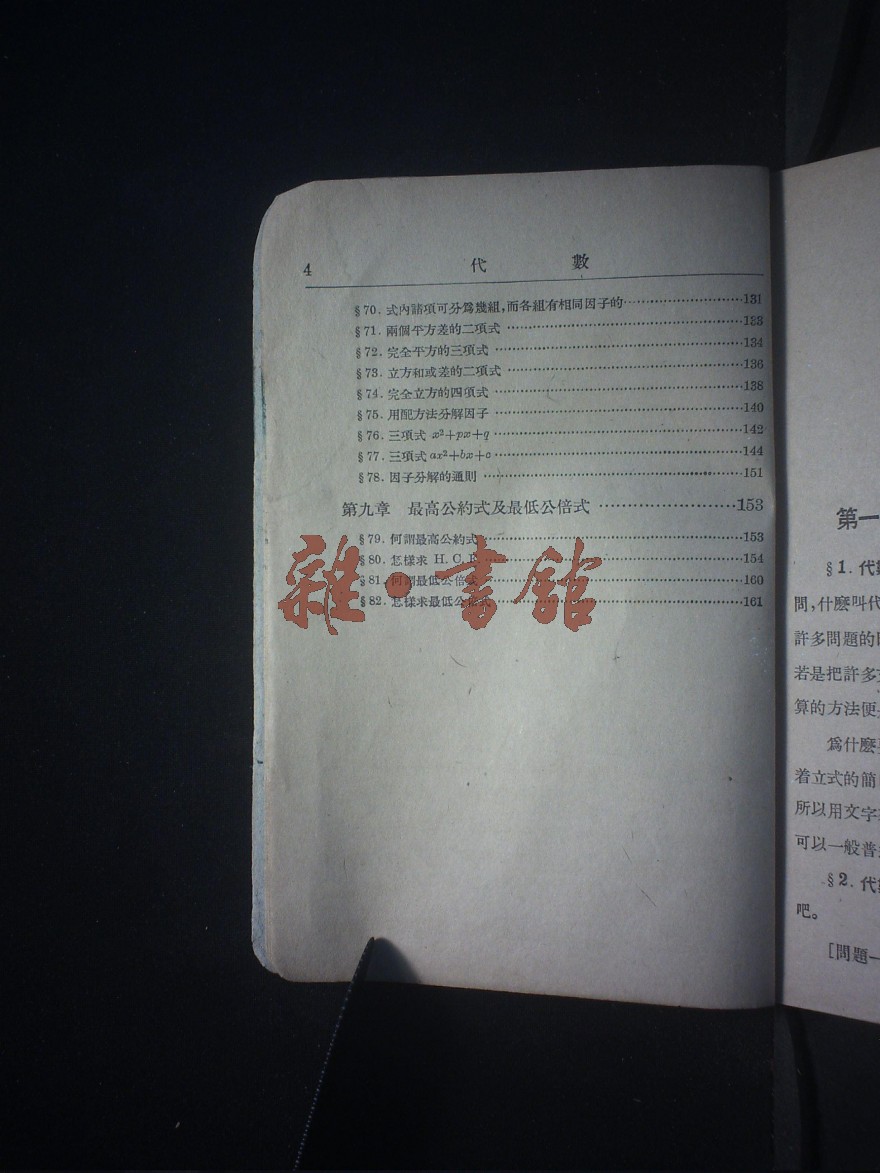 4 代 數
§70. 式內諸項可分爲幾組,而各組有相同因子的……131
§71. 兩個平方差的二項式……133
§72. 完全平方的三項式……134
§73. 立方和或差的二項式……136
§74. 完全立方的四項式……138
§75. 用配方法分解因子……140
§76. 三項式 x²+px+q……142
§77. 三項式 ax²+bx+c……144
§78. 因子分解的通則……151
第九章 最高公約式及最低公倍式……153
§79. 何謂最高公約式……153
§80. 怎樣求 H. C. F.……154
§81. 何謂最低公倍式……160
§82. 怎樣求最低公倍式……161
雜·書館
第一
§1. 代數
問,什麽叫代
許多問題的
若是把許多
算的方法便
爲什麽
着立式的簡
所以用文字
可以一般普
§2. 代
吧。
[問題一